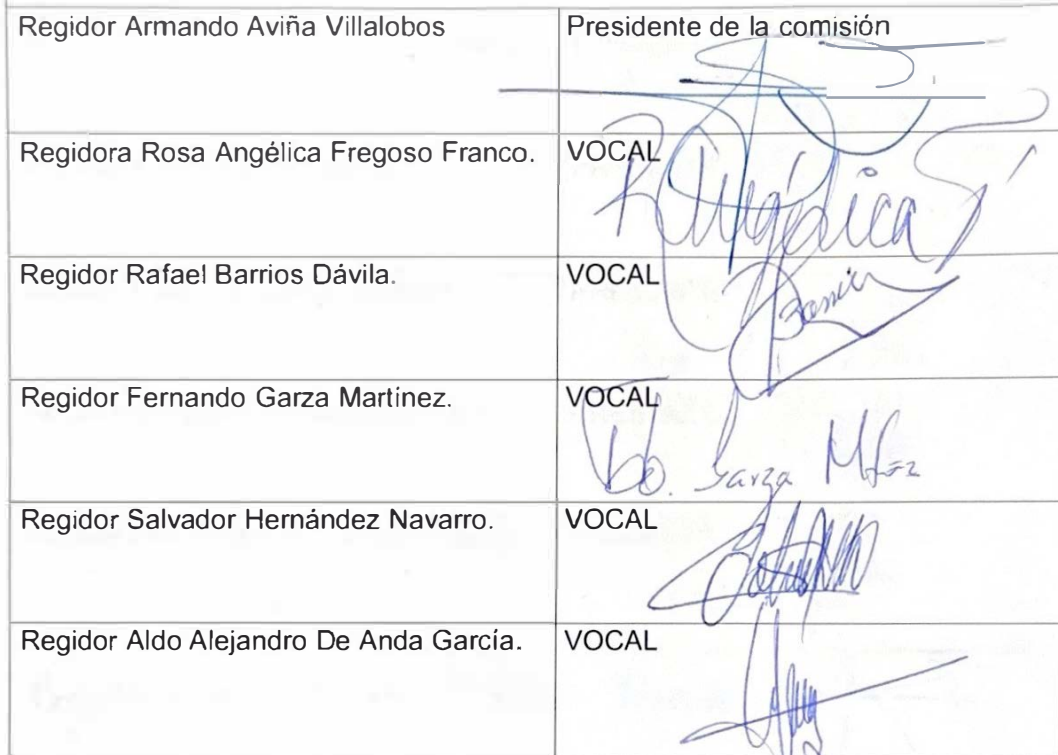 Regidor Armando Aviña Villalobos Presidente de la comisión
Regidora Rosa Angélica Fregoso Franco. VOCAL
R Angélica F
Regidor Rafael Barrios Dávila. VOCAL
Barrios
Regidor Fernando Garza Martínez. VOCAL
Fdo. Garza Mtnez
Regidor Salvador Hernández Navarro. VOCAL
Regidor Aldo Alejandro De Anda García. VOCAL